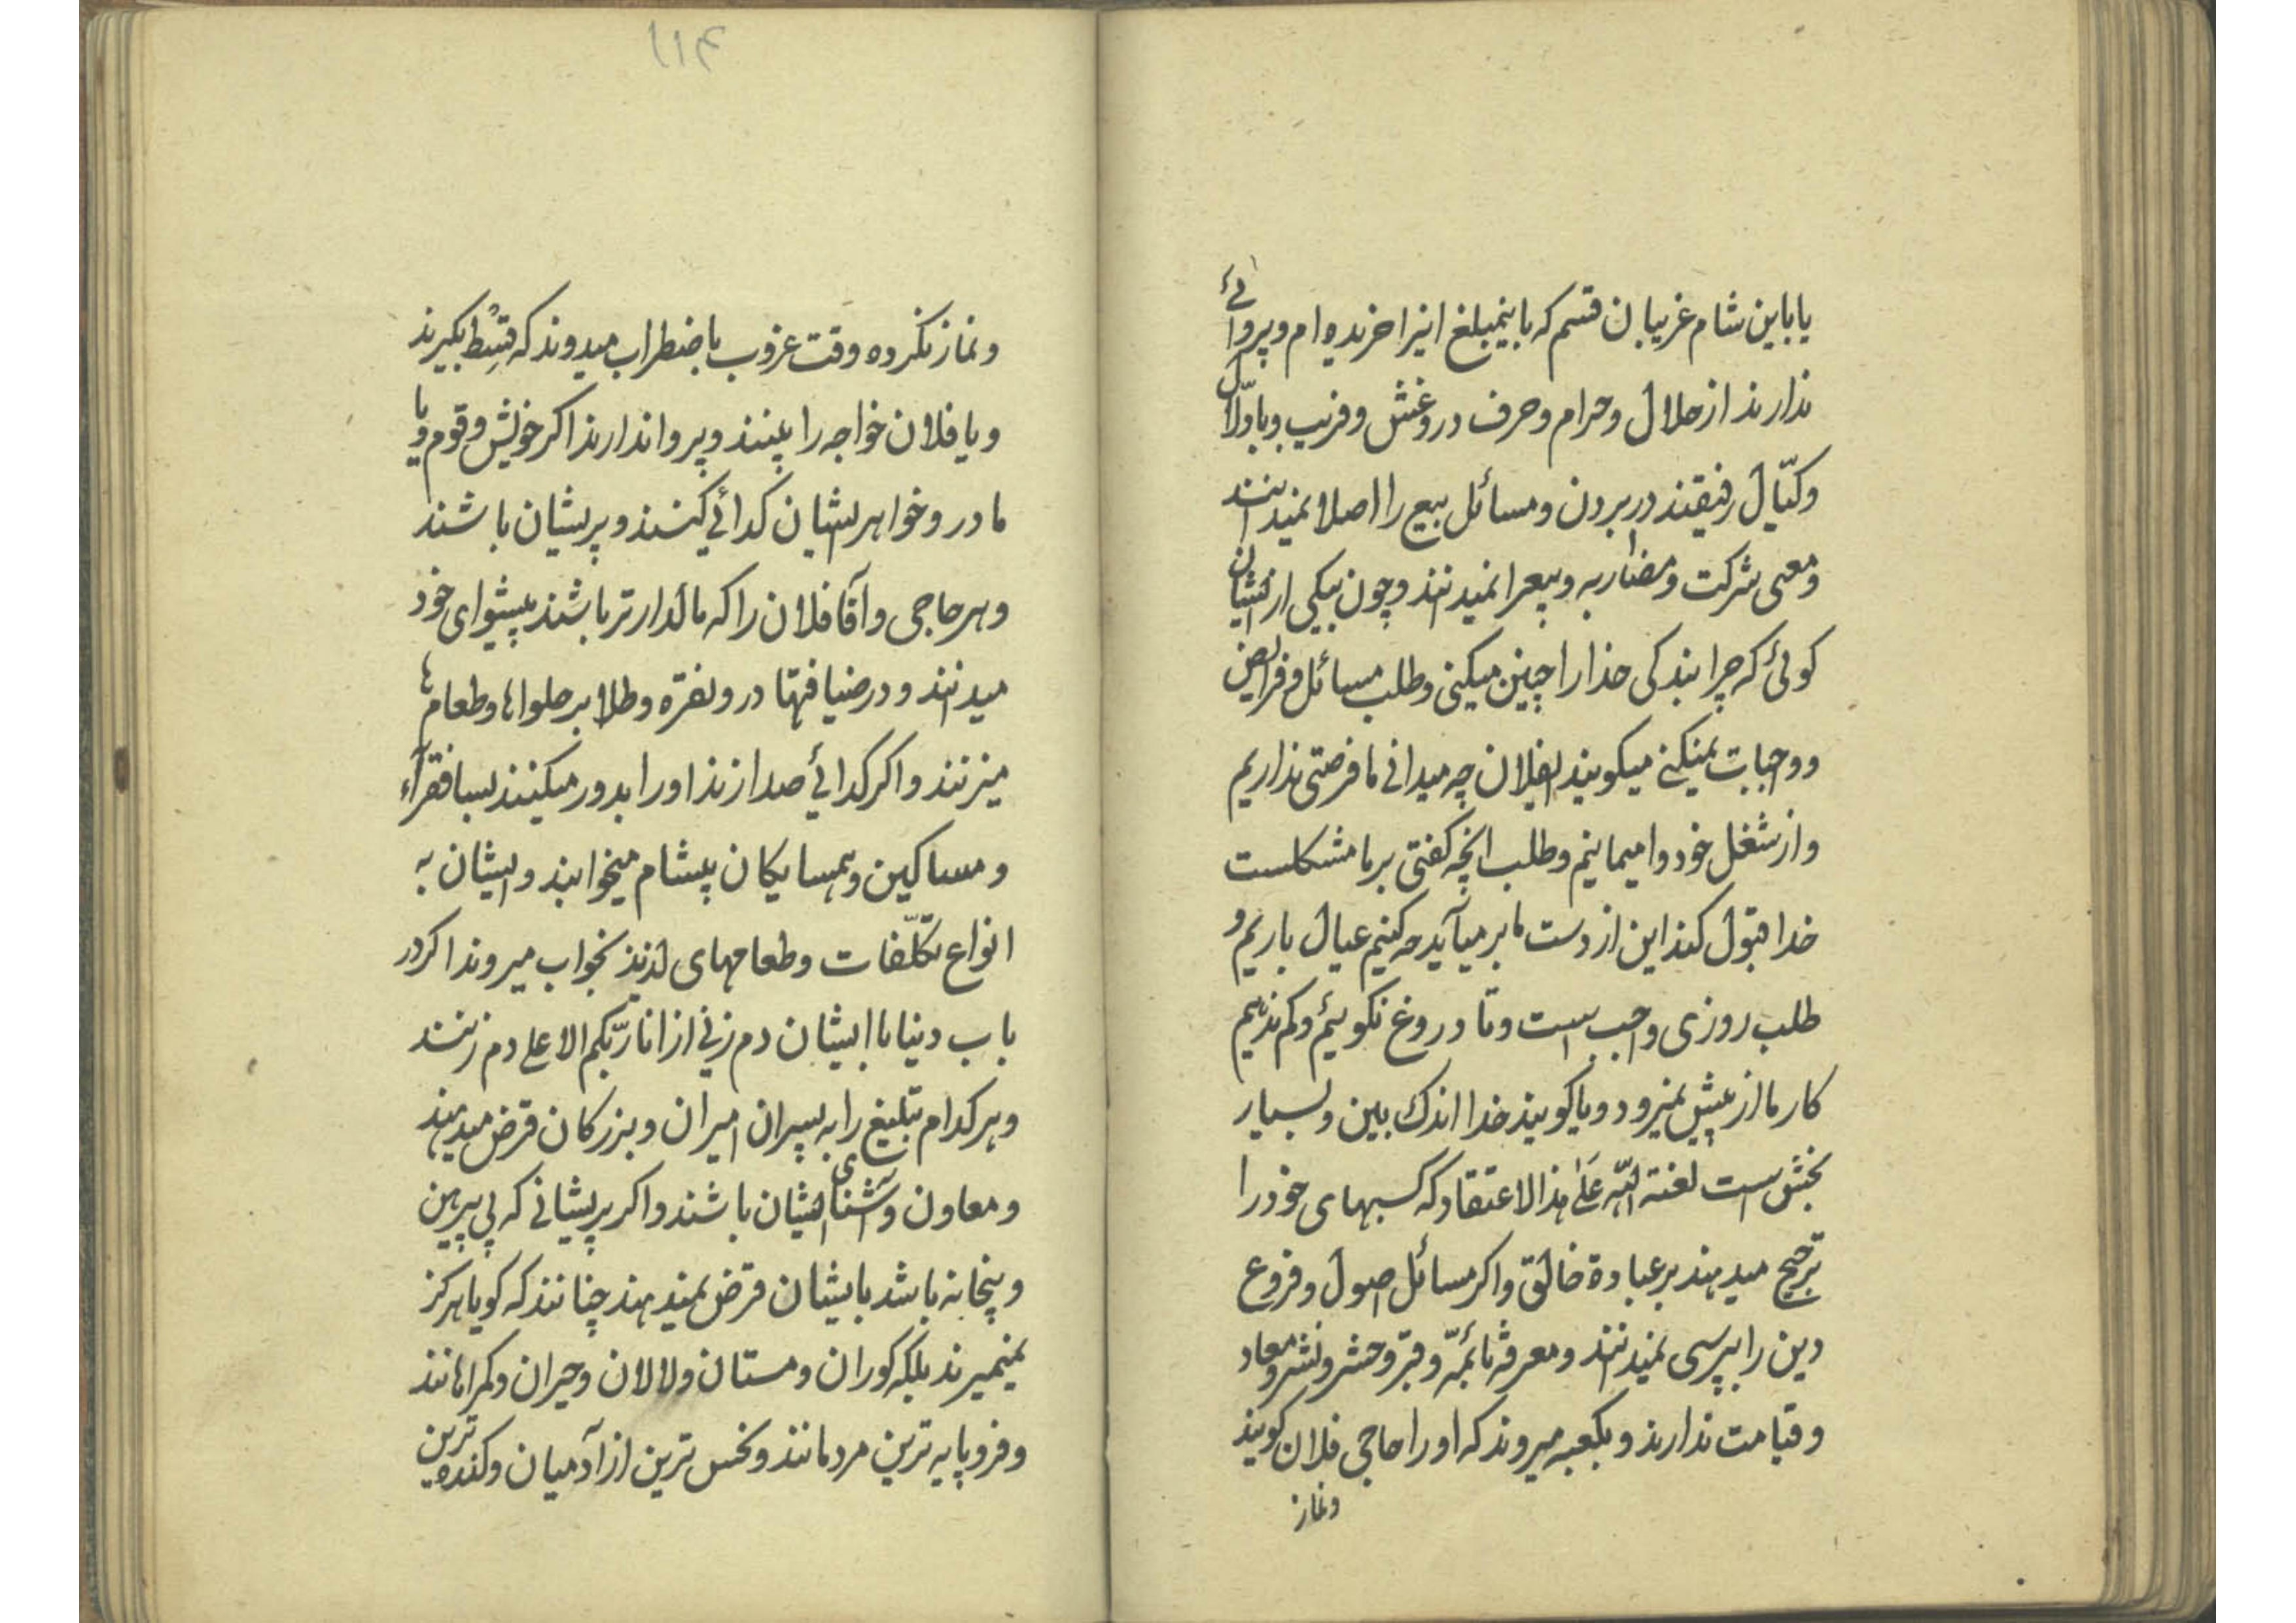 یا باین شام غریبان قسم که باینمبلغ اینرا خریده ام و پروائی
ندارند از حلال و حرام و حرف دروغش و فریب و با دلّال
و کیّال رفیقند در بردن و مسائل بیع را اصلا نمیدانند
و معنی شرکت و مضاربه و بیع را نمیدانند و چون بیکی ازیشان
کوئی که چرا بندکی خدا را چنین میکنی و طلب مسائل و فرایض
و واجبات نمیکنی میکویند بفلان چه میدانی ما فرصتی نداریم
و از شغل خود وا میمانیم و طلب انچه کفتی بر ما مشکلست
خدا قبول کند این از دست ما بر میآید چه کنیم عیال باریم و
طلب روزی واجب است و تا دروغ نکوئیم و کم ندهیم
کار ما از پیش نمیرود و یا کویند خدا اندک بین و بسیار
بخش است لعنة اللّه عَلیٰ هذا الاعتقاد که کسبهای خود را
ترجیح میدهند بر عبادة خالق و اکر مسائل اصول و فروع
دین را بپرسی نمیدانند و معرفة ائمّه و قبر و حشر و نشر و معاد
و قیامت ندارند و بکعبه میروند که او را حاجی فلان کویند
و نماز
۱۱۴
و نماز نکرده وقت غروب باضطراب میدوند که قسط بکیرند
و یا فلان خواجه را ببینند و پروا ندارند اکر خویش و قوم و یا
مادر و خواهر ایشان کدائی کنند و پریشان باشند
و هر حاجی و آقا فلان را که مالدارتر باشند پیشوای خود
میدانند و در ضیافتها در و نقره و طلا بر حلواها و طعامها
میزنند و اکر کدائی صدا زند او را بدور میکنند بسا فقرآء
و مساکین و همسایکان بیشام میخوابند و ایشان به
انواع تکلّفات و طعامهای لذیذ بخواب میروند اکر در
باب دنیا با ایشان دم زنی از انا ربّکم الاعلی دم زنند
و هر کدام تبلیغ را به پسران امیران و بزرکان قرض میدهند
و معاون و آشنای ایشان باشند و اکر پریشانی که بی پیرهن
و بیخانه باشد بایشان قرض نمیدهند چنانند که کویا هرکز
نمیمیرند بلکه کوران و مستان و لالان و حیران و کمراهانند
و فرومایه ترین مردمانند و نحس ترین از آدمیان و کنده ترین